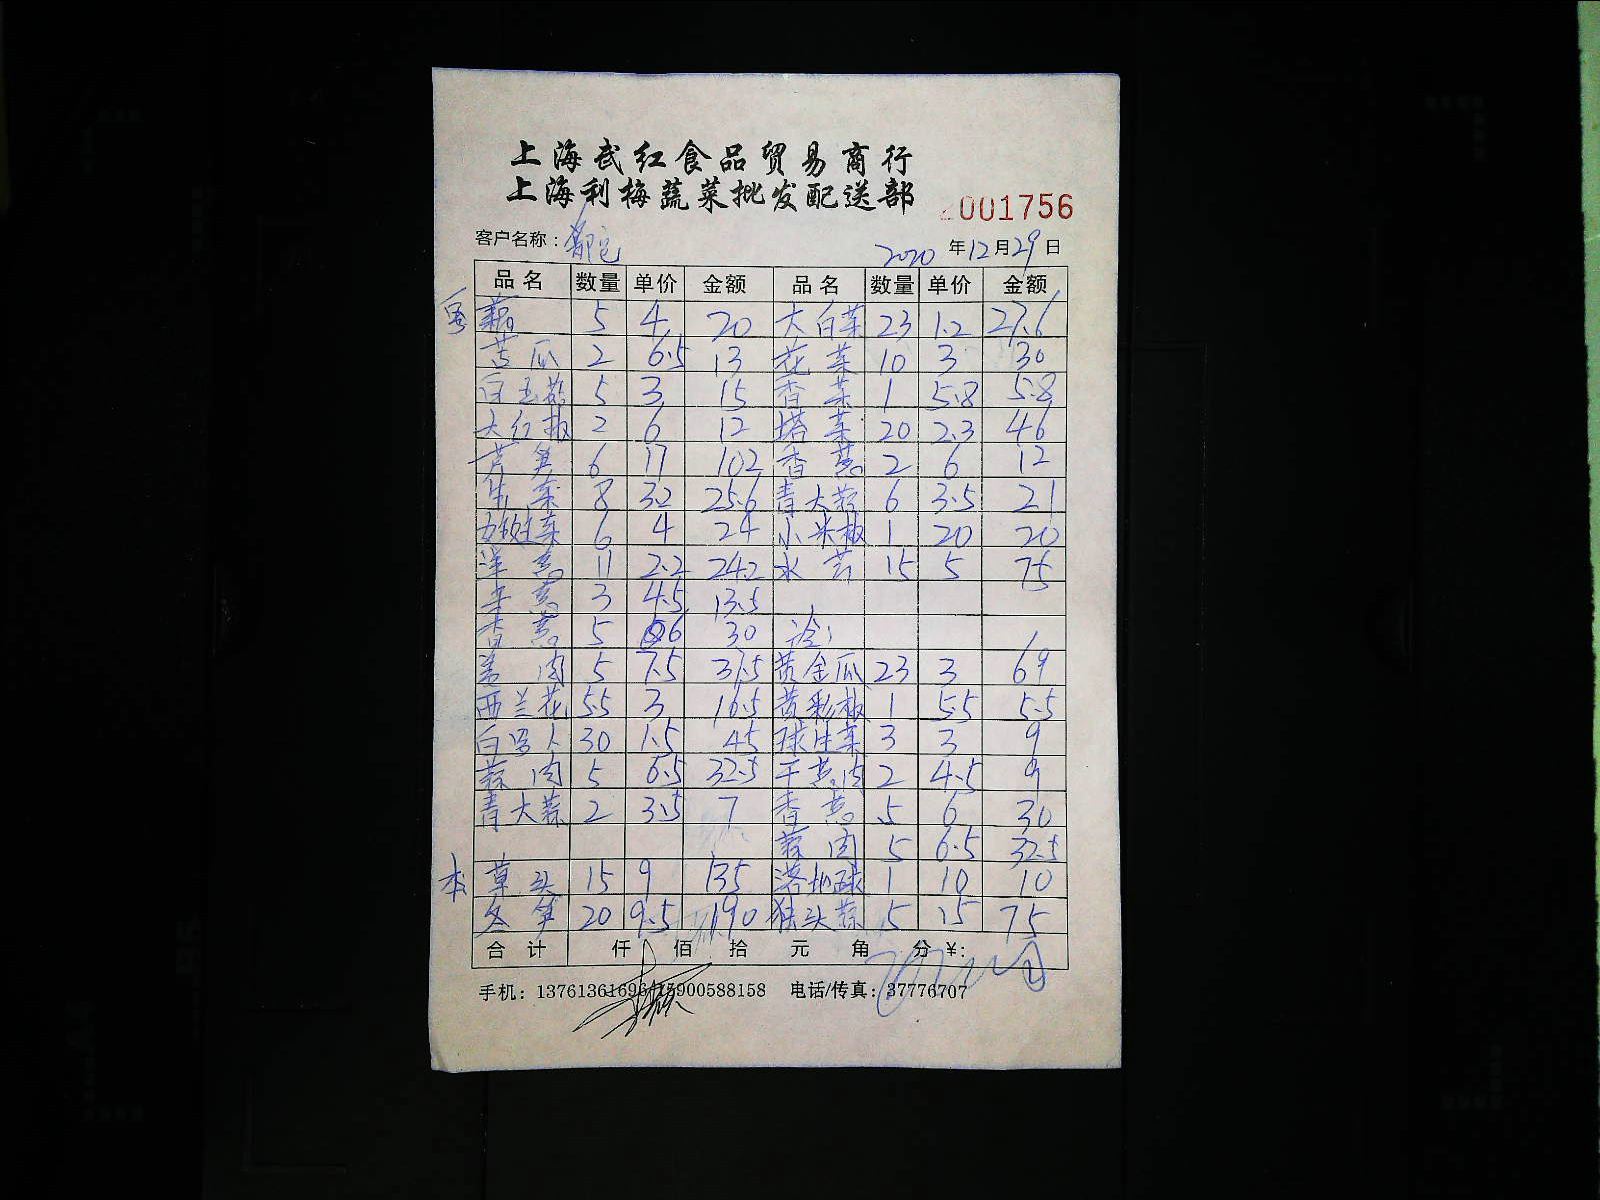 上海武红食品贸易商行
上海利梅蔬菜批发配送部
2001756
客户名称：
2020年12月29日
品名 数量 单价 金额 品名 数量 单价 金额
藕 5 4 20 大白菜 23 1.2 27.6
苦瓜 2 6.5 13 花菜 10 3 30
白玉菇 5 3 15 香菜 1 5.8 5.8
大红椒 2 6 12 塔菜 20 2.3 46
芦笋 6 17 102 香葱 2 6 12
生菜 8 3.2 25.6 青大蒜 6 3.5 21
娃菜 6 4 24 小米椒 1 20 20
洋葱 11 2.2 24.2 水芹 15 5 75
3 4.5 13.5
香葱 5 6 30 冷:
姜肉 5 7.5 37.5 黄金瓜 23 3 69
西兰花 5.5 3 16.5 黄彩椒 1 5.5 5.5
白罗卜 30 1.5 45 球生菜 3 3 9
蒜肉 5 6.5 32.5 干葱肉 2 4.5 9
青大蒜 2 3.5 7 香葱 5 6 30
蒜肉 5 6.5 32.5
本 草头 15 9 135 落地球 1 10 10
冬笋 20 9.5 190 独头蒜 5 15 75
合计 仟 佰 拾 元 角 分 ¥:
手机：13761361696 15900588158 电话/传真：37776707